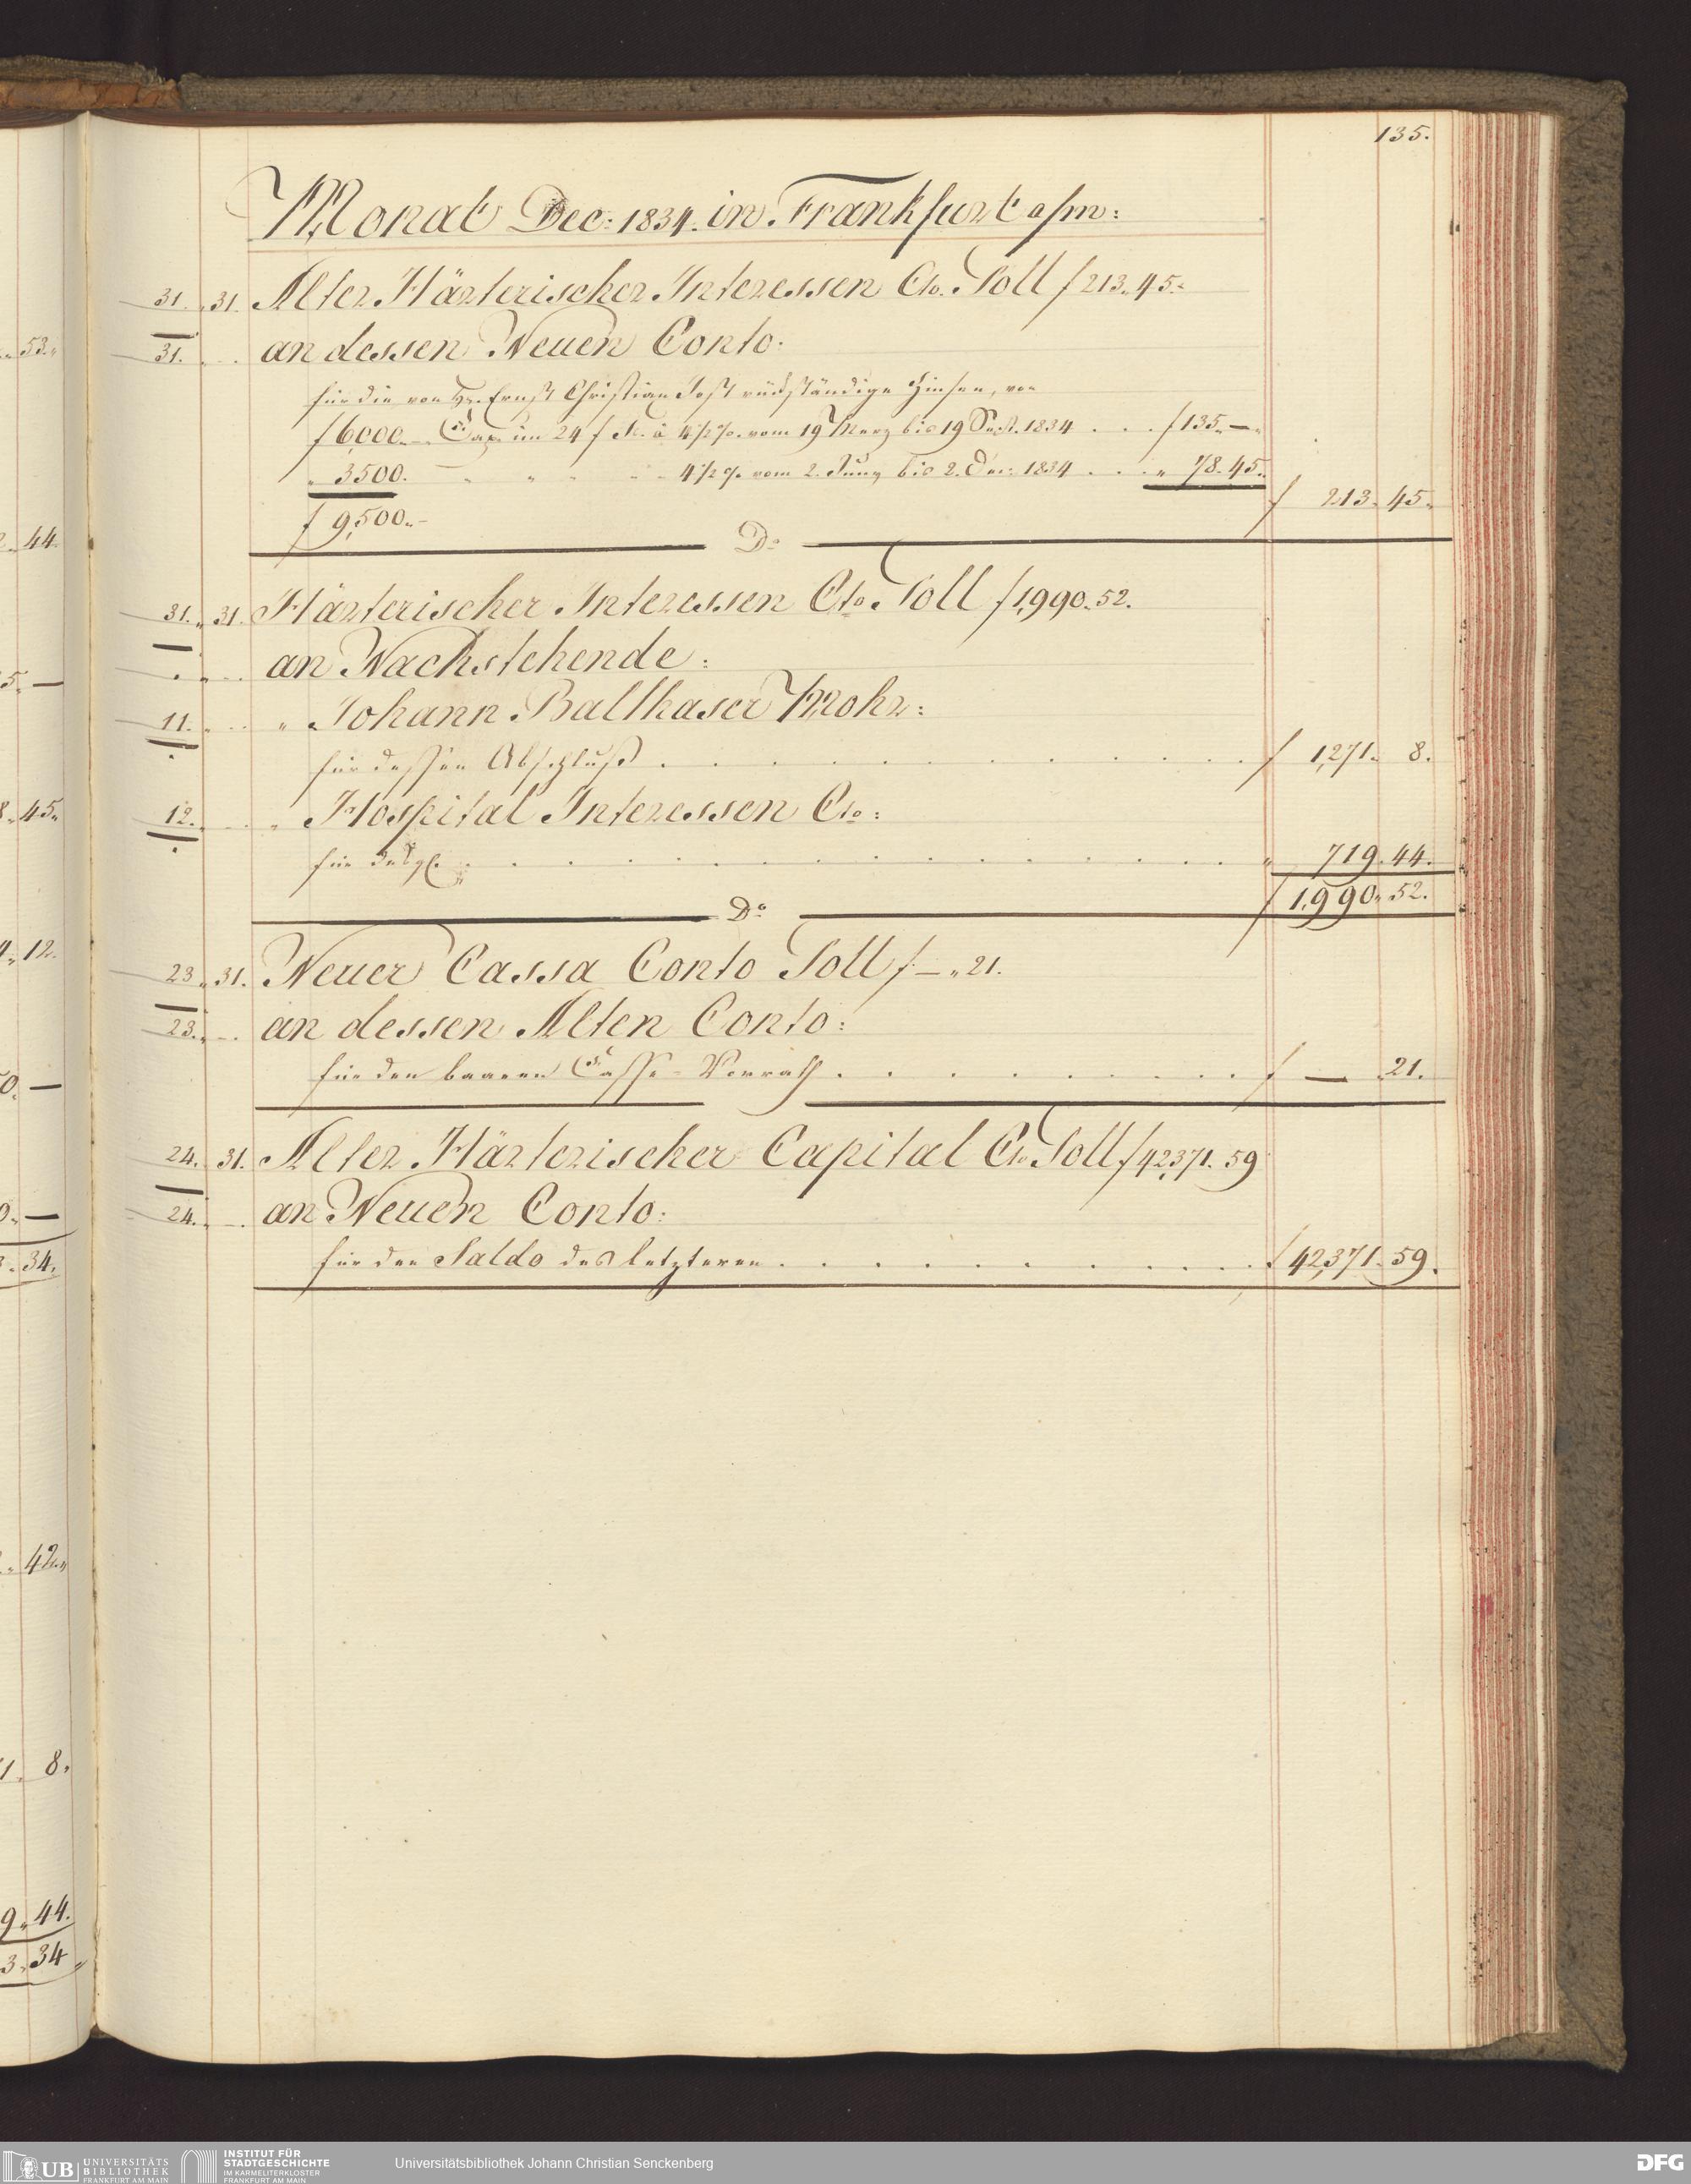 135.
Monat Dec: 1834. in Frankfurt a/m:
31. 31. Alter Härterischer Interessen Cto. Soll f 213. 45.
31. an dessen Neuen Conto:
für die von Hr. Ernst Christian Jost rückständige Zinsen, von
f 6,000. — Cap. im 24 f à 4 1/2 %. vom 19 Merz bis 19 Sept. 1834 . . . f 135. —.
" 3500. — " " " 4 1/2 % vom 2. Juny bis 2. Dec: 1834 . . . " 78. 45.
f 213. 45.
f 9,500. —
Do
31. 31. Härterischer Interessen Cto. Soll f 1,990. 52.
an Nachstehende:
11. " Johann Balthaser Mohr:
für dessen Abschluß . . . . . . . . . . . f 1,271. 8.
12. " Hospital Interessen Cto:
für desgl. . . . . . . . . . . . . . " 719. 44.
f 1,990. 52.
Do
23. 31. Neuer Cassa Conto Soll f —. 21.
23. an dessen Alten Conto:
für den baaren Casse-Vorrath . . . . . . . . f — 21.
24. 31. Alter Härterischer Capital Cto Soll f 42,371. 59
24. an Neuen Conto:
für den Saldo des letzteren . . . . . . . . . f 42,371. 59.
53.
44.
5. —
8. 45.
12.
0. —
0. —
34.
42.
1. 8.
9. 44.
3. 34
UB UNIVERSITÄTS BIBLIOTHEK FRANKFURT AM MAIN
INSTITUT FÜR STADTGESCHICHTE IM KARMELITERKLOSTER FRANKFURT AM MAIN
Universitätsbibliothek Johann Christian Senckenberg
DFG